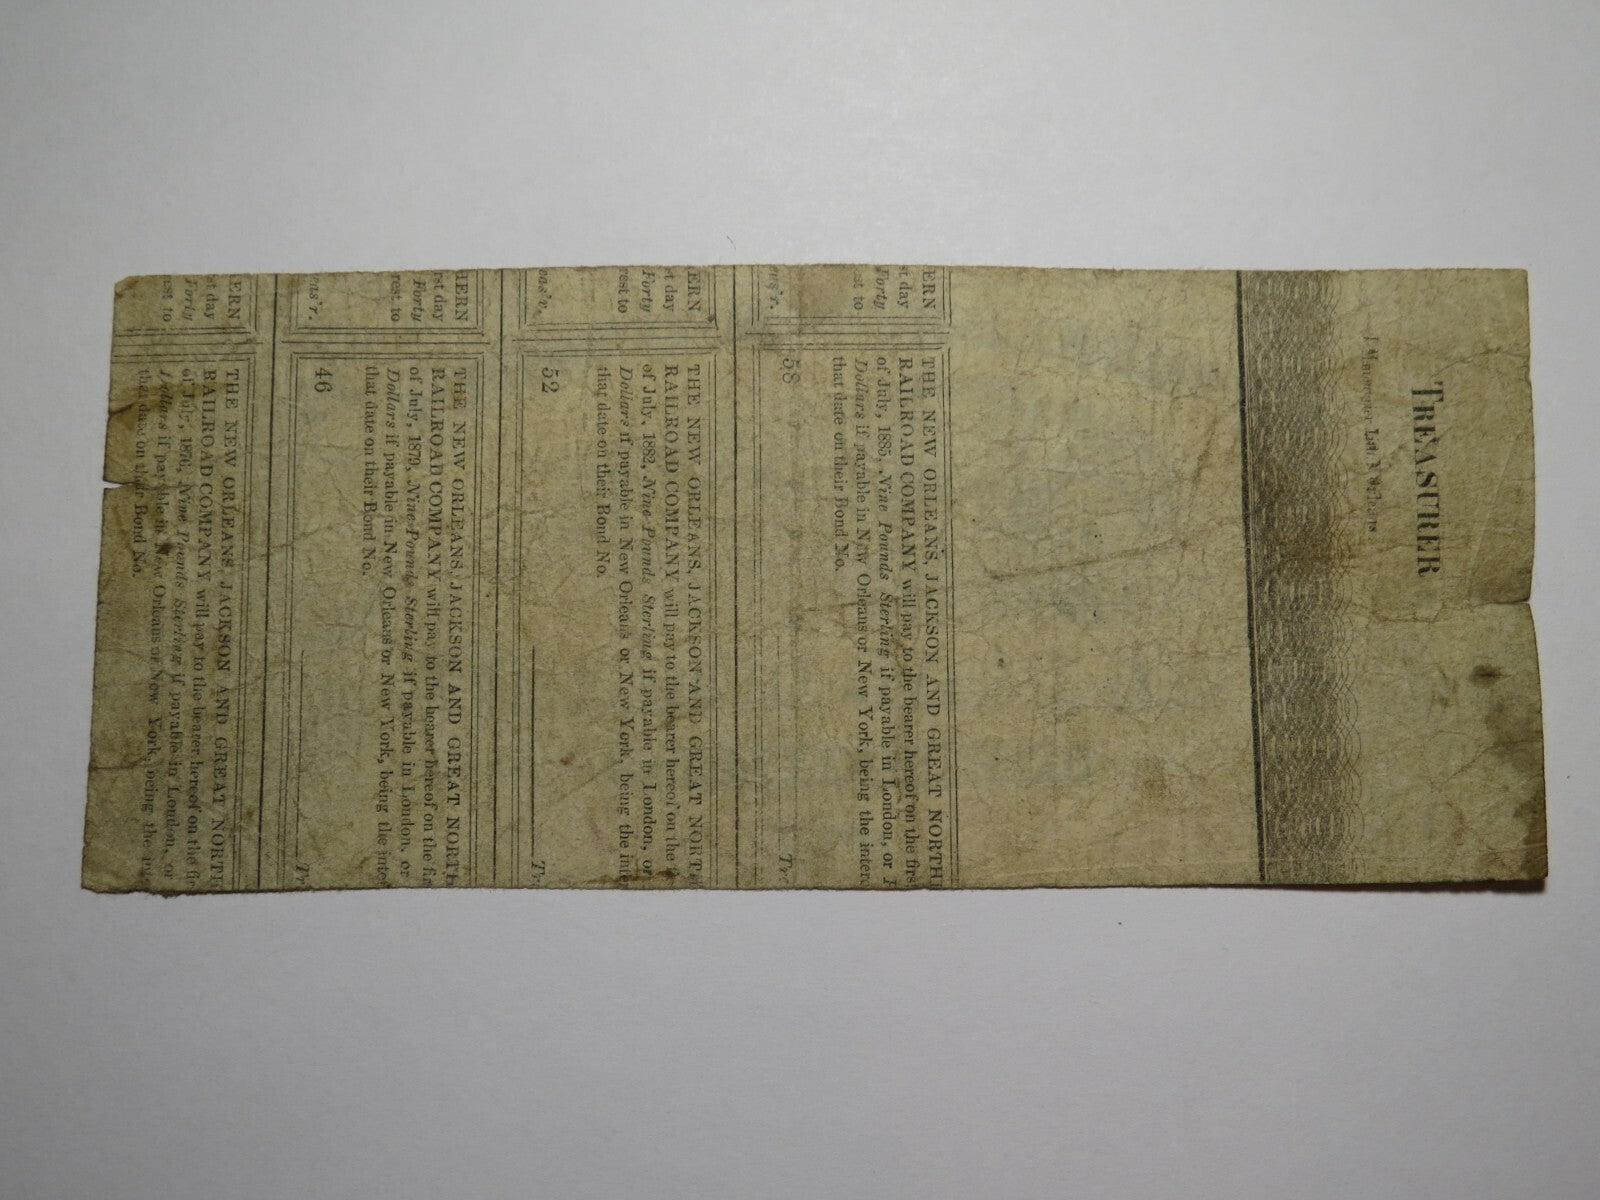 TREASURER
ERN
st day
Forty
est to
ens'r.
THE NEW ORLEANS, JACKSON AND GREAT NORTH
RAILROAD COMPANY will pay to the bearer hereof on the firs
of July, 1885, Nine Pounds Sterling if payable in London, or
Dollars if payable in New Orleans or New York, being the intere
that date on their Bond No.
58
Tre
ERN
st day
Forty
rest to
ens'r.
THE NEW ORLEANS, JACKSON AND GREAT NORTH
RAILROAD COMPANY will pay to the bearer hereof on the
of July, 1882, Nine Pounds Sterling if payable in London, or
Dollars if payable in New Orleans or New York, being the inter
that date on their Bond No.
52
Tr
HERN
rst day
Forty
rest to
ens'r.
THE NEW ORLEANS, JACKSON AND GREAT NORTH
RAILROAD COMPANY will pay to the bearer hereof on the fir
of July, 1879, Nine Pounds Sterling if payable in London, or
Dollars if payable in New Orleans or New York, being the inte
that date on their Bond No.
46
Tr
ERN
st day
Forty
est to
THE NEW ORLEANS, JACKSON AND GREAT NORTH
RAILROAD COMPANY will pay to the bearer hereof on the fir
of July, 1876, Nine Pounds Sterling if payable in London, or
Dollars if payable in New Orleans or New York, being the inte
that date on their Bond No.